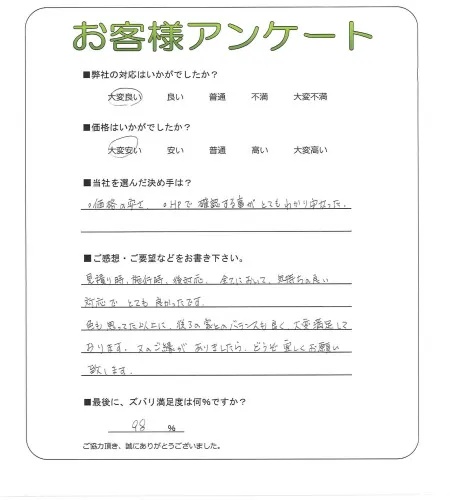 お客様アンケート
■弊社の対応はいかがでしたか?
大変良い 良い 普通 不満 大変不満
■価格はいかがでしたか?
大変安い 安い 普通 高い 大変高い
■当社を選んだ決め手は?
○価格の安さ、○HPで確認する事がとてもわかりやすかった。
■ご感想・ご要望などをお書き下さい。
見積り時、施行時、後対応、全てにおいて、気持ちの良い
対応で とても良かったです。
色も思ってた以上に、我家の家とのバランスも良く、大変満足して
おります。又のご縁がありましたら、どうぞ宜しくお願い
致します。
■最後に、ズバリ満足度は何%ですか?
98 %
ご協力頂き、誠にありがとうございました。